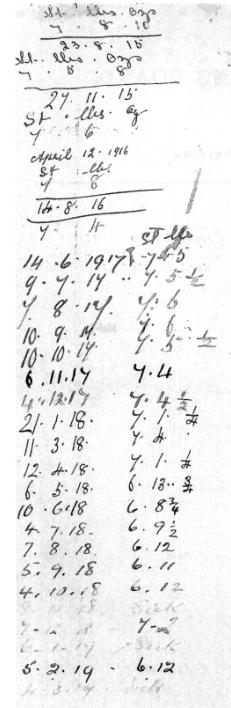 St. lbs. ozs
7 . 8 . 15
23. 8. 15
St. lbs. ozs
7 . 8 . 8
27. 11. 15
St . lbs. oz
7 6
April 12. 1916
St . lbs
7 8
14. 8. 16
7. 4
St lbs
14 . 6. 1917 7 5
9. 7. 17 " 7. 5 1/2
7. 8. 17. 7. 6
10. 9. 17. 7. 6
10. 10. 17 7. 5 1/2
6. 11. 17 7. 4
4. 12. 17 7. 4 1/2
21. 1. 18. 7. 1. 1/4
11. 3. 18. 7. 4.
12. 4. 18. 7. 1.
6. 5. 18. 6. 13. 3/4
10. 6. 18 6. 8 3/4
4. 7. 18. 6. 9 1/2
7. 8. 18. 6. 12
5. 9. 18 6. 11
4. 10. 18 6. 12
Sick
7. 12. 18 7 - 2
6. 1. 19 Sick
5. 2. 19 - 6. 12
4. 3. 19 Sick